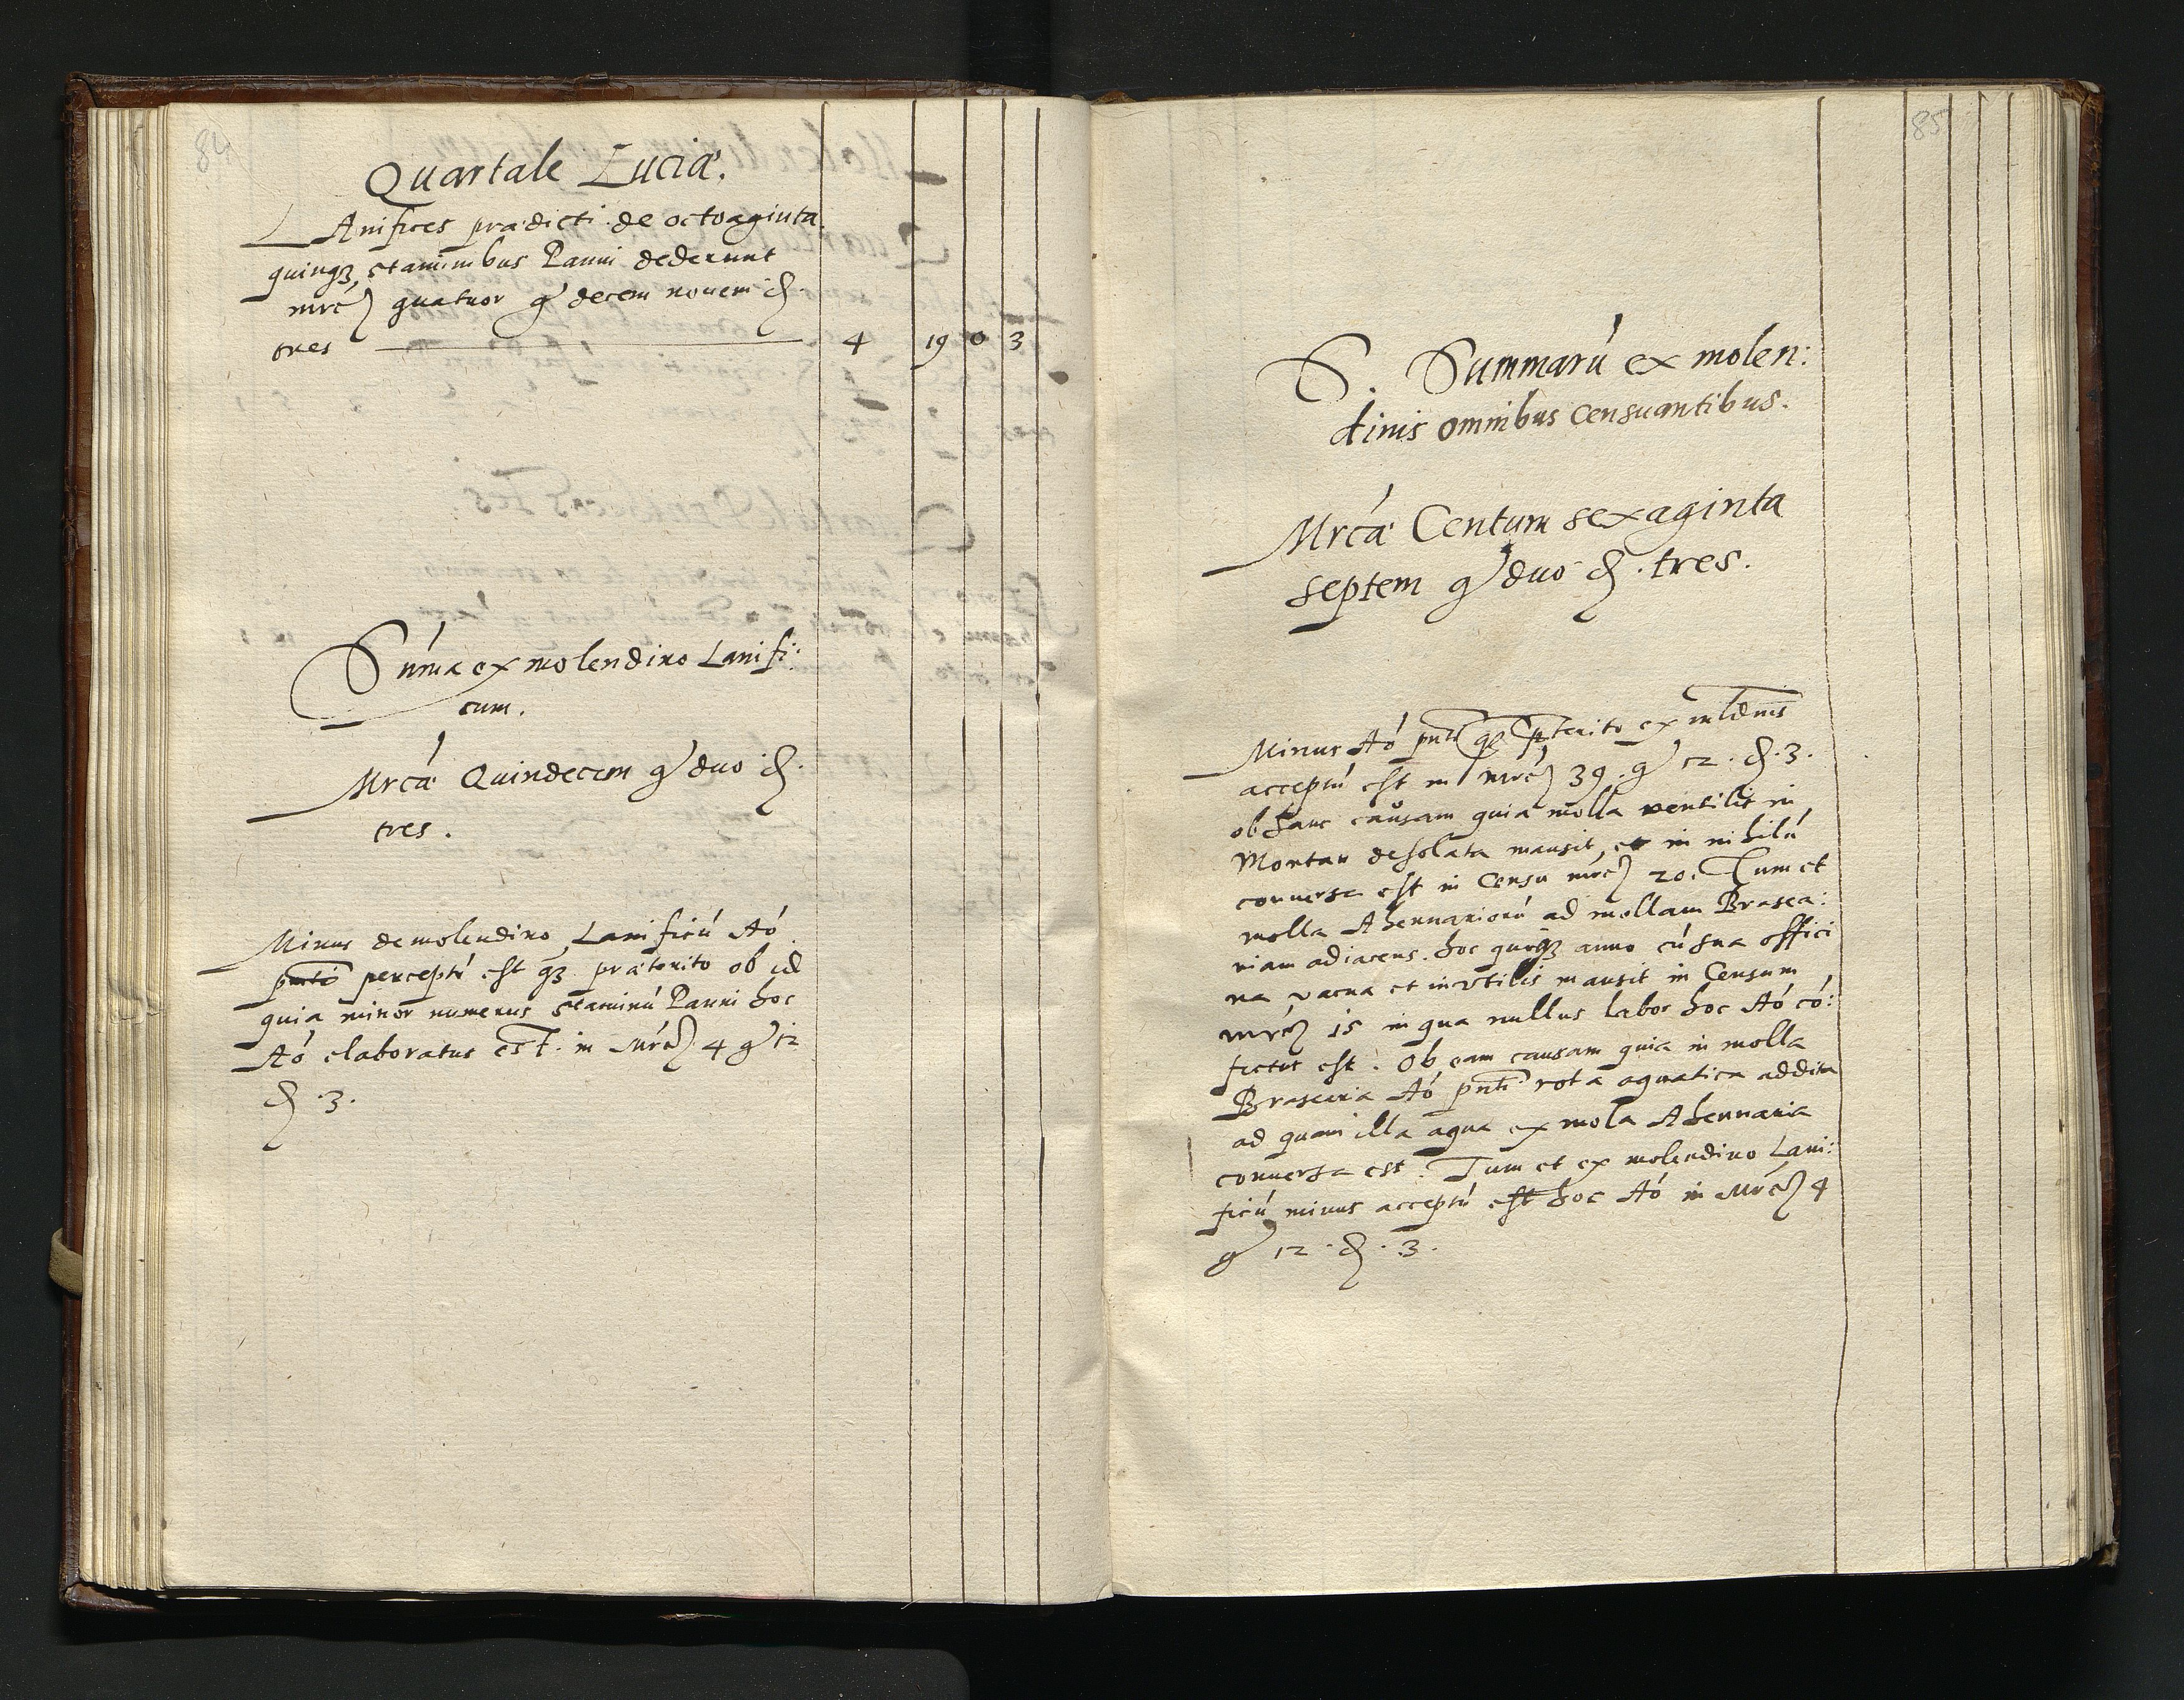 84
Quartale Luciæ.
LAnifices prædicti de octoaginta
quinqȝ staminibus Panni dederunt
mrc quatuor g decem novem d.
tres 4 19 0 3
Súma ex molendino Lanifi:
cum.
Mrcá Quindecem g duo d
tres.
Minus de molendino Lanificú Aó
pnti perceptú est qȝ præterito ob id
quia minor numerus staminú Panni hoc
Aó elaboratus est. in Mrc 4 g 12
d. 3.
85
S. Summarú ex molen:
dinis omnibus censuantibus.
Mrcá Centum sexaginta
septem g duo d. tres.
Minus Aó pnti qȝ pterito ex mldinis
acceptú est in mrc 39. g 12. d. 3.
ob hanc causam quia molla ventilis in
Montau desolata mansit, et in nihilú
conversa est in Censu mrc 20. Tum et
molla Ahennariorú ad mollam Brasea:
riam adiacens. hoc quoqȝ anno cú sua offici
na vacua et invtilis mansit in Censum
mrc 15 in qua nullus labor hoc Aó có:
fectus est. Ob eam causam quia in molla
Brasearia Aó pnti rota aquatica addita
ad quam illa aqua ex mola Ahennaria
conversa est. Tum et ex molendino Lani:
ficú minus acceptú est hoc Aó in Mrc 4
g 12. d. 3.